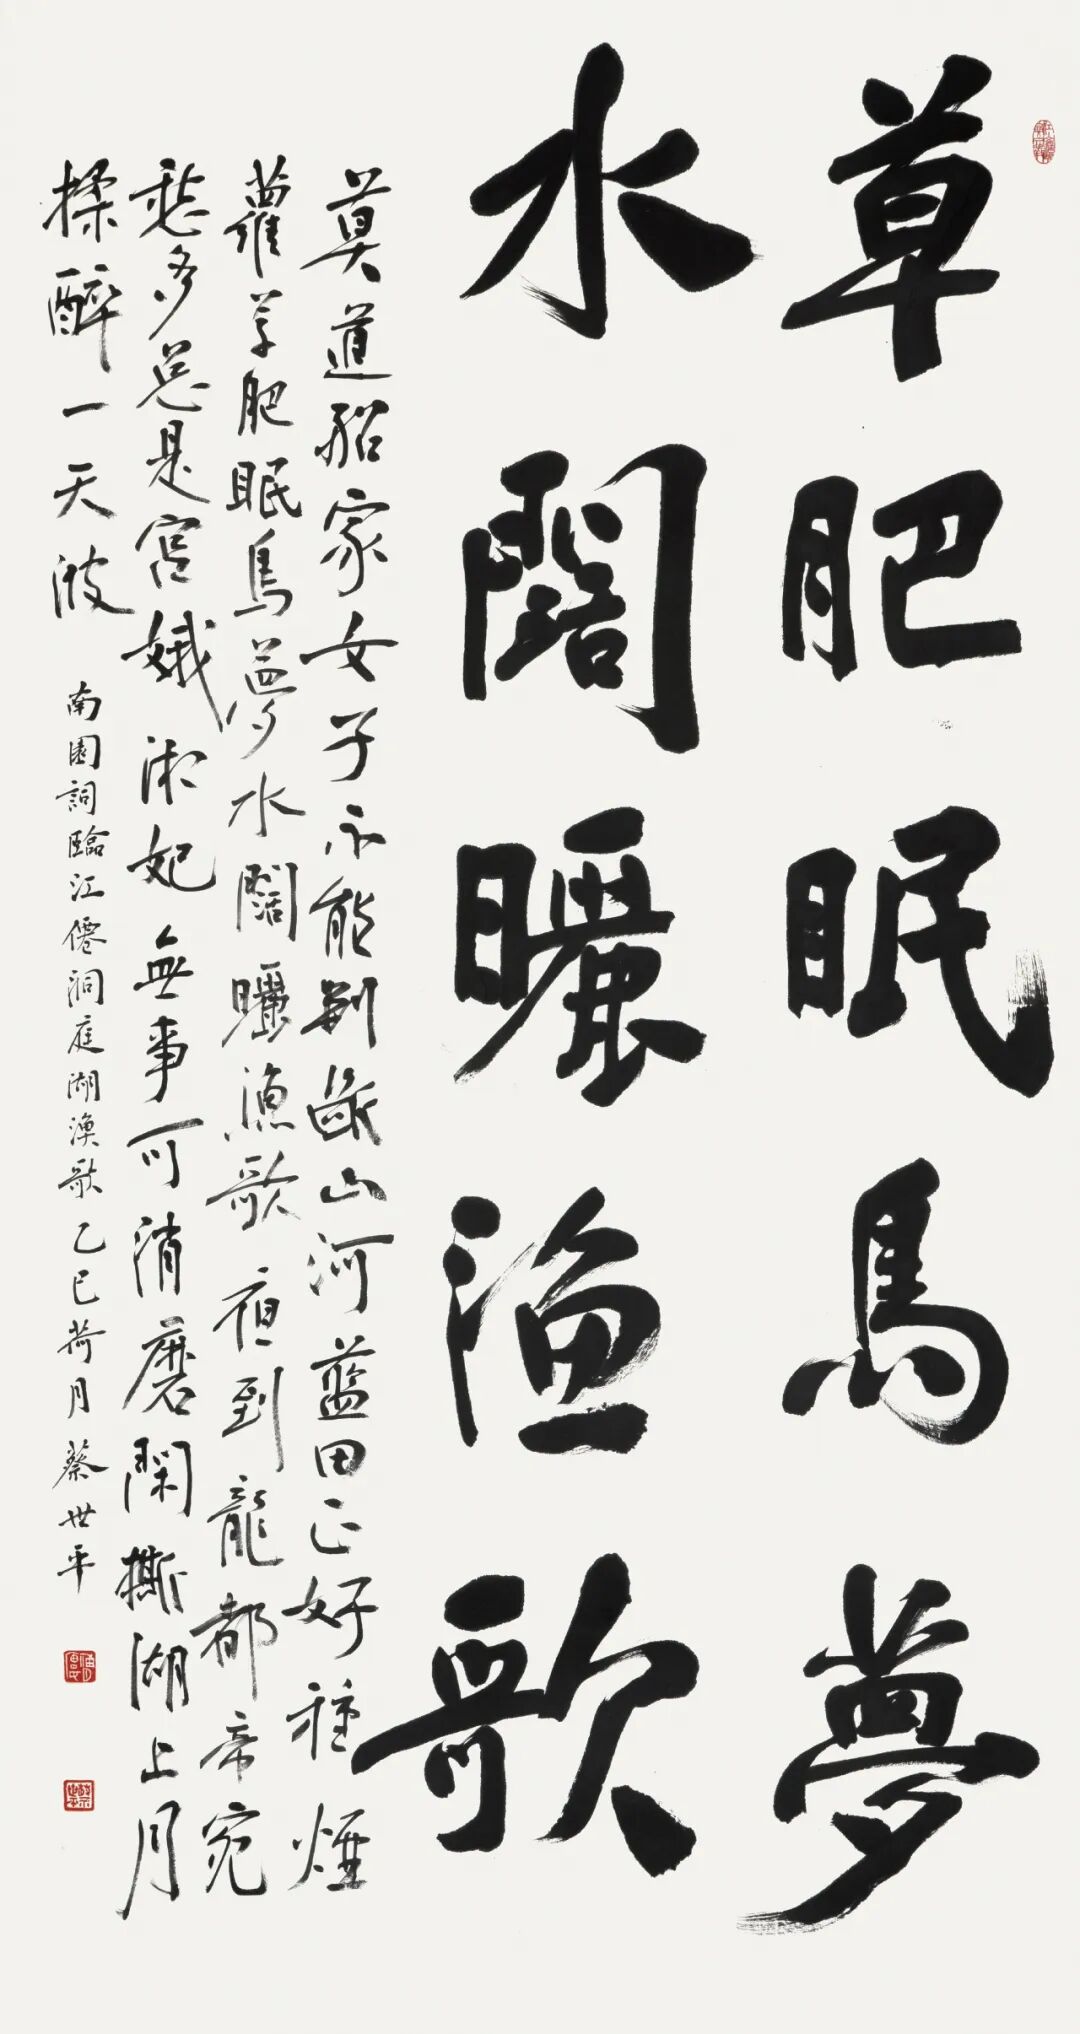 草肥眠鳥夢
水闊曬漁歌
莫道船家女子不能剁斷山河藍田正好種煙
蘿草肥眠鳥夢水闊曬漁歌夜到龍都帝宛
愁多總是宮娥湘妃無事可消磨閑撕湖上月
揉醉一天波
南園詞臨江僊洞庭湖漁歌乙巳荷月蔡世平